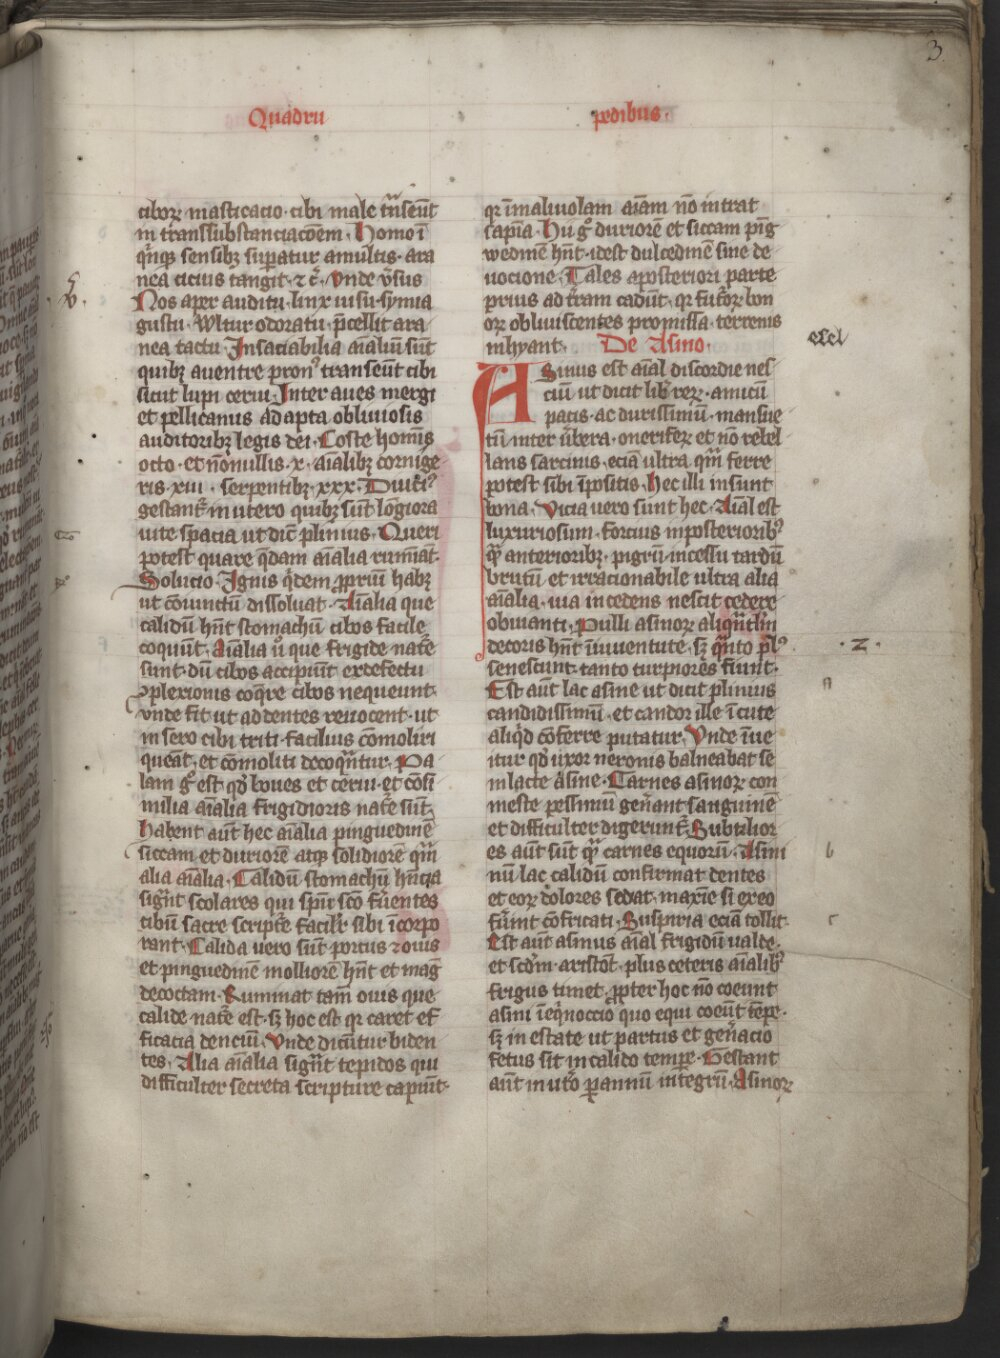 3
Quadru pedibus·
ciboꝝ masticacio· cibi male tn̄seūt
in transsubstanciacōem· Homo ī
qͥnqꝫ sensibꝫ suꝑatur amultis· ara
nea cicius tangit· ⁊ cͣ· Vnde v̄sus
Nos aper auditu· linx uisu· symia
gustu· Wltur odoratu· p̄cellit ara
nea tactu· Insaciabilia aīalia sūt
quibꝫ auentre pronꝰ transeūt cibi
sicut lupi cerui· Inter aues mergi
et pellicanus adapta obliuiosis
auditoribꝫ legis dei· Coste homīs
octo· et nōnullis· x· aīalibꝫ cornige
ris xiii· serpentibꝫ xxx· Diuciꝰ
gestant᷑ in utero quibꝫ sūt lōgiora
uite spacia ut dic̄t plinius· Queri
potest quare qͥdam aīalia rumīāt·
Solucio· Ignis qͥdem ꝓpriū habꝫ
ut cōiunctū dissoluat· Aīalia que
calidū hn̄t stomachū cibos facile
coquūt· Aīalia u̇ que frigide nat᷑e
sunt· dū cibos accipiūt exdefectu
ꝯplexionis coqͥre cibos nequeunt·
vnde fit ut ad dentes reuocent· ut
in sero cibi triti· facilius cōmoliri
queāt· et cōmoliti decoqn̄tur· Pa
lam gͦ est qd̓ boues et cerui· et cōsi
milia aīalia frigidioris nat᷑e sūt·
Habent aūt hec aīalia pinguedinē
siccam et duriorē atqꝫ solidiorē qͣm
alia aīalia· Calidū stomachū hn̄cia
sign̄t scolares qui spū sc̄o fūentes
cibū sacre scripte facilr̄ sibi īcorpo
rant· Calida uero sūt porcus ⁊ ouis
et pinguedinē molliorē hn̄t et mag̉
decoctam· Ruminat tam̄ ouis que
calide nat᷑e est· sꝫ hoc est qr caret ef
ficacia dencium̄· Vnde dicūtur biden
tes· Alia aīalia sign̄t tepidos qui
difficulter secreta scripture capiūt·
qr īmaliuolam aīam nō intrat
sapīa· Hii gͦ duriorē et siccam pīg
wedinē hn̄t· idest dulcedinē sine de
uocione· Tales aposteriori parte
prius ad t̄ram cadūt· qr futoꝝ bon
oꝝ obliuiscentes promissa· terrenis
inhyant· De Asino·
esel
ASinus est aīal discordie nes
cīu ut dicit lib̓ reꝝ· amicū
pacis· ac durissimū· mansue
tū inter v̄bera· oneriferꝝ et nō rebel
lans sarcinis· eciā ultra qͣm ferre
potest sibi īpositis· Hec illi insunt
bona· Vicia uero sunt hec· Aīal est
luxuriosum· forcius inposterioribꝰ
qͣ anterioribꝫ· pigrū· incessu tardū
brutū· et irracionabile ultra alia
aīalia· uia incedens nescit cedere
obuianti· Pulli asinoꝝ aliqn̄tlm̄
decoris hn̄t īiuuentute· sꝫ qͣnto plꝰ
senescunt· tanto turpiores fiunt·
·2·
Est aūt lac asine ut dicit plinius
a
candidissimū· et candor ille ī cute
aliqͥd cōferre putatur· Vnde īue
itur qd̓ uxor neronis balneabat se
in lacte asine· Carnes asinoꝝ con
meste pessimū gen̄ant sanguinē
et difficulter digerunt᷑· Subtilior
es aūt sūt qͣ carnes equorū· Asini
b
nū lac calidū confirmat dentes
et eoꝝ dolores sedat· maxīe si ex eo
fūint cōfricati· Suspiria eciā tollit·
c
Est aūt asinus aīal frigidū ualde·
et scd̓m· aristot̄· plus ceteris aīalibꝰ
frigus timet· ꝓpter hoc nō coeunt
asini īeqͥnoccio quo equi coeūt tēpe·
sꝫ in estate ut partus et gen̄acio
fetus sit in calido tempe· Gestant
aūt in ut̄o ꝑ annū integrū· Asinoꝝ